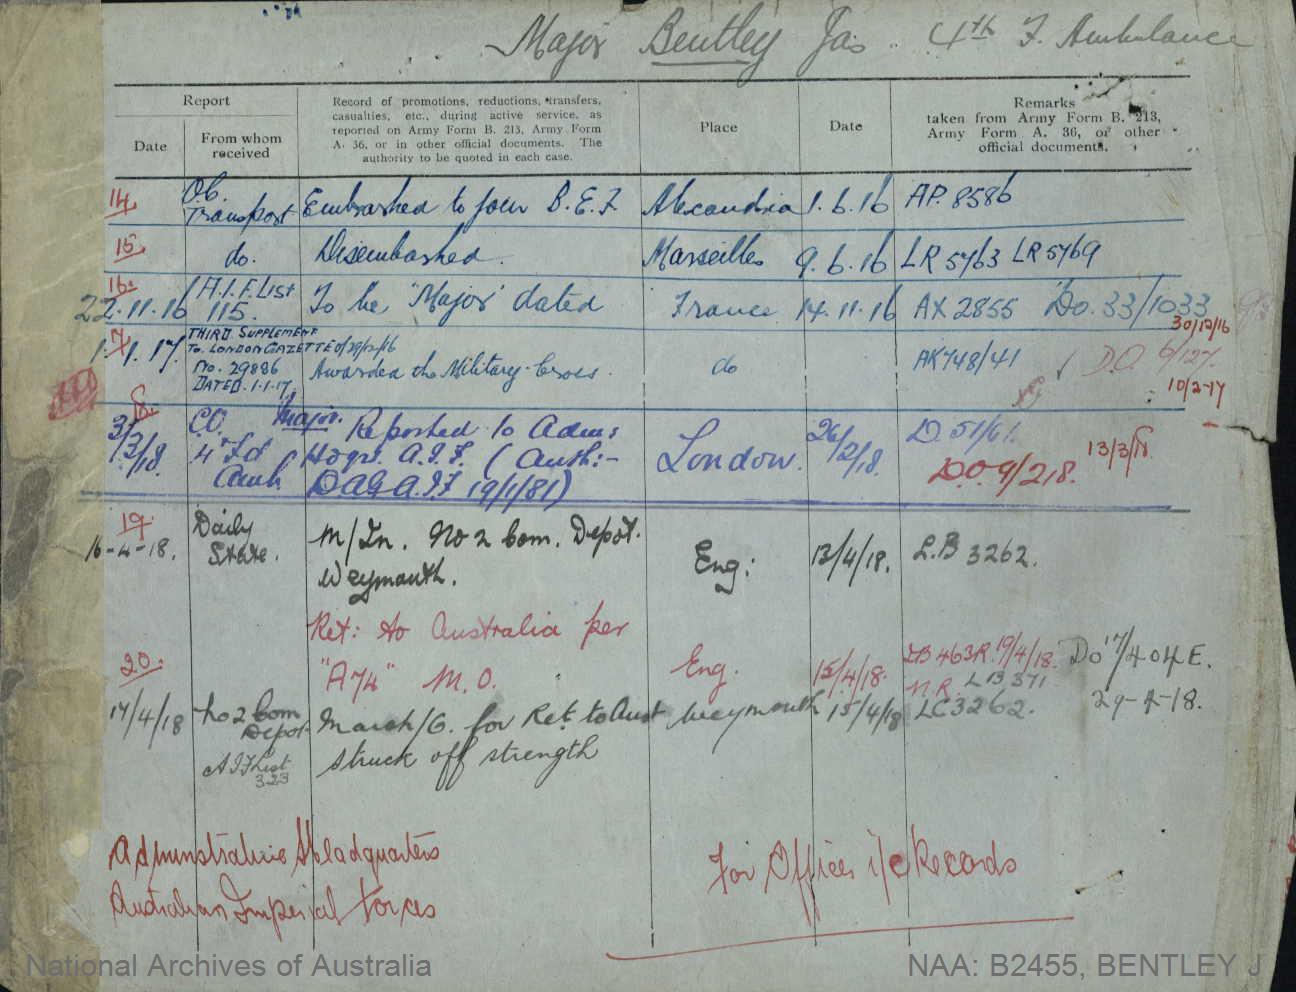 Major Bentley Jas. 4th F. Ambulance
Report
Date
From whom received
Record of promotions, reductions, transfers, casualties, etc., during active service, as reported on Army Form B. 213, Army Form A. 36, or in other official documents. The authority to be quoted in each case.
Place
Date
Remarks
taken from Army Form B. 213, Army Form A. 36, or other official documents.
14. O.C. Transport Embarked to join B.E.F. Alexandria 1.6.16 AP. 8586
15. do. Disembarked. Marseilles 9.6.16 LR 5763 LR 5769
16. 22.11.16 A.I.F. List 115. To be "Major" dated France 14.11.16 AX 2855 Do. 33/1033
30/12/16
17. 1.1.17. THIRD. SUPPLEMENT
To. LONDON GAZETTE d/29/12/16
No. 29886
DATED. 1.1.17. Awarded the Military Cross. do AK748/41 D.O. 6/127.
10/2-17
18. 3/3/18. C.O. 4" Fd Amb. Major. Reported to Adm:
Hqrs. A.I.F. (Auth:-
DAG A.I.F 19/1/81) London. 26/2/18. D. 51/61.
D.O. 9/218. 13/3/18.
19. 16-4-18. Daily State. M/In. No 2 Com. Depot.
Weymouth. Eng: 13/4/18. L.B 3262.
20. Ret: to Australia per
"A74" M.O. Eng. 15/4/18. LB 463R. 19/4/18. Do 17/404E.
N.R. LB 371
17/4/18 No 2 Com Depot March/O. for Ret. to Aust Weymouth 15/4/18 LC3262. 29-4-18.
A I F List 323 Struck off strength
Administrative Headquarters
Australian Imperial Forces
For Officer i/c Records
National Archives of Australia
NAA: B2455, BENTLEY J